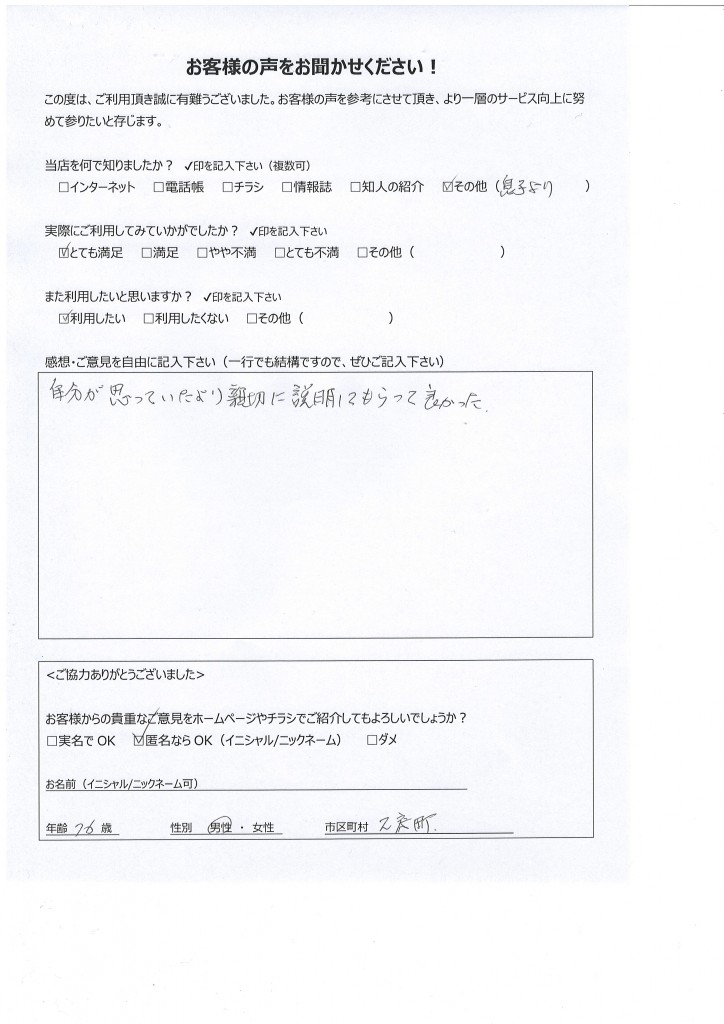 お客様の声をお聞かせください！
この度は、ご利用頂き誠に有難うございました。お客様の声を参考にさせて頂き、より一層のサービス向上に努
めて参りたいと存じます。
当店を何で知りましたか？ ✓印を記入下さい（複数可）
□インターネット □電話帳 □チラシ □情報誌 □知人の紹介 ☑その他（息子より ）
実際にご利用してみていかがでしたか？ ✓印を記入下さい
☑とても満足 □満足 □やや不満 □とても不満 □その他（ ）
また利用したいと思いますか？ ✓印を記入下さい
☑利用したい □利用したくない □その他（ ）
感想・ご意見を自由に記入下さい（一行でも結構ですので、ぜひご記入下さい）
自分が思っていたより親切に説明してもらって良かった.
<ご協力ありがとうございました>
お客様からの貴重なご意見をホームページやチラシでご紹介してもよろしいでしょうか？
□実名で OK ☑匿名なら OK（イニシャル/ニックネーム） □ダメ
お名前（イニシャル/ニックネーム可）
年齢 76 歳 性別 男性 ・ 女性 市区町村